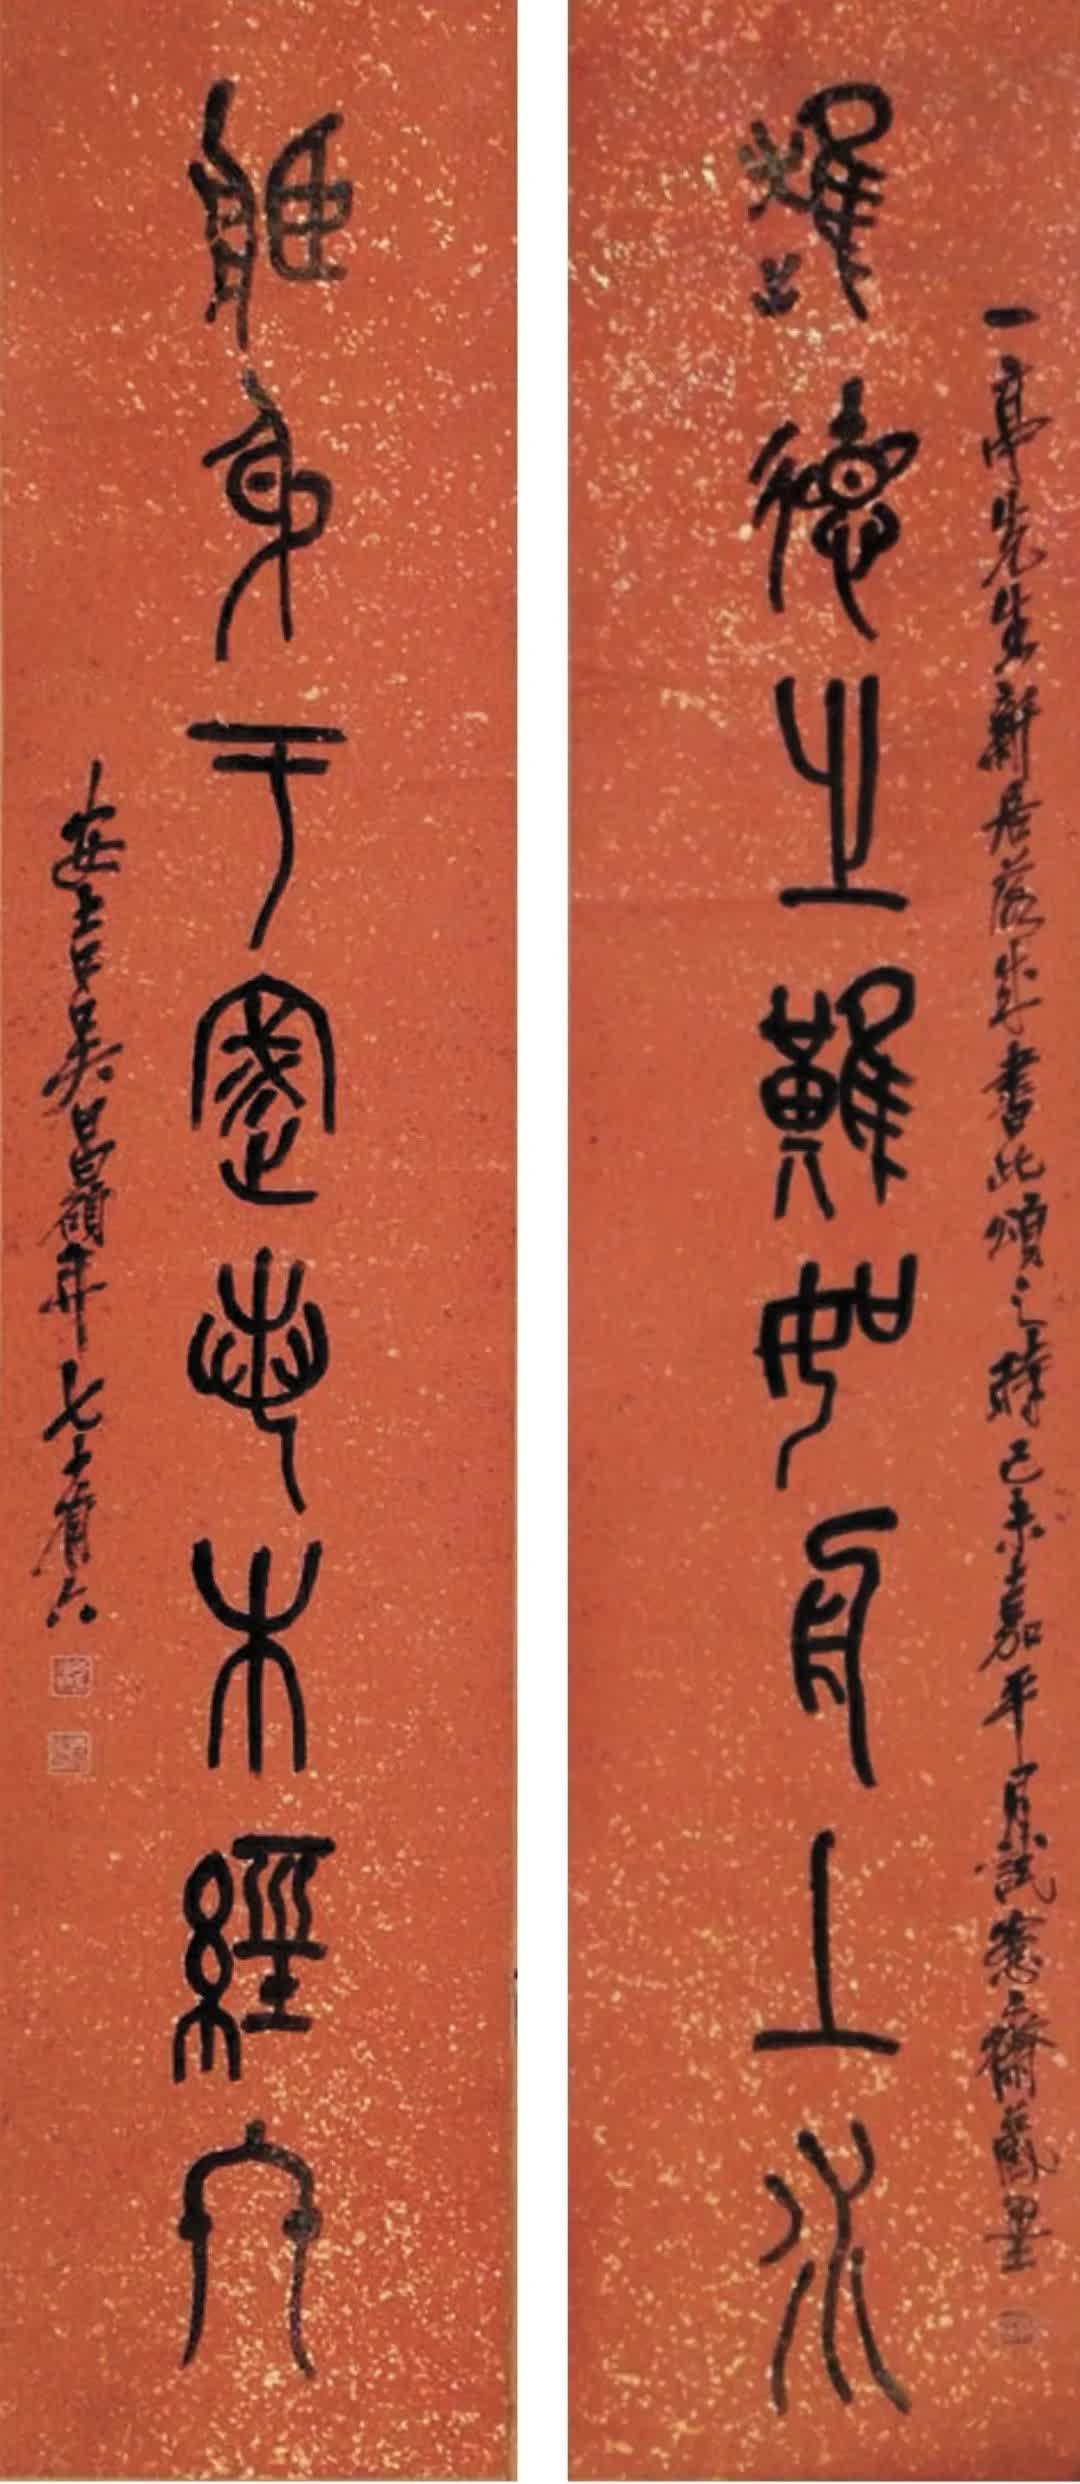 一亭先生新居落成書此頌之時己未嘉平月試愙齋藏墨
燿德之難如舟上水
身于木經
安吉吳昌碩年七十有六